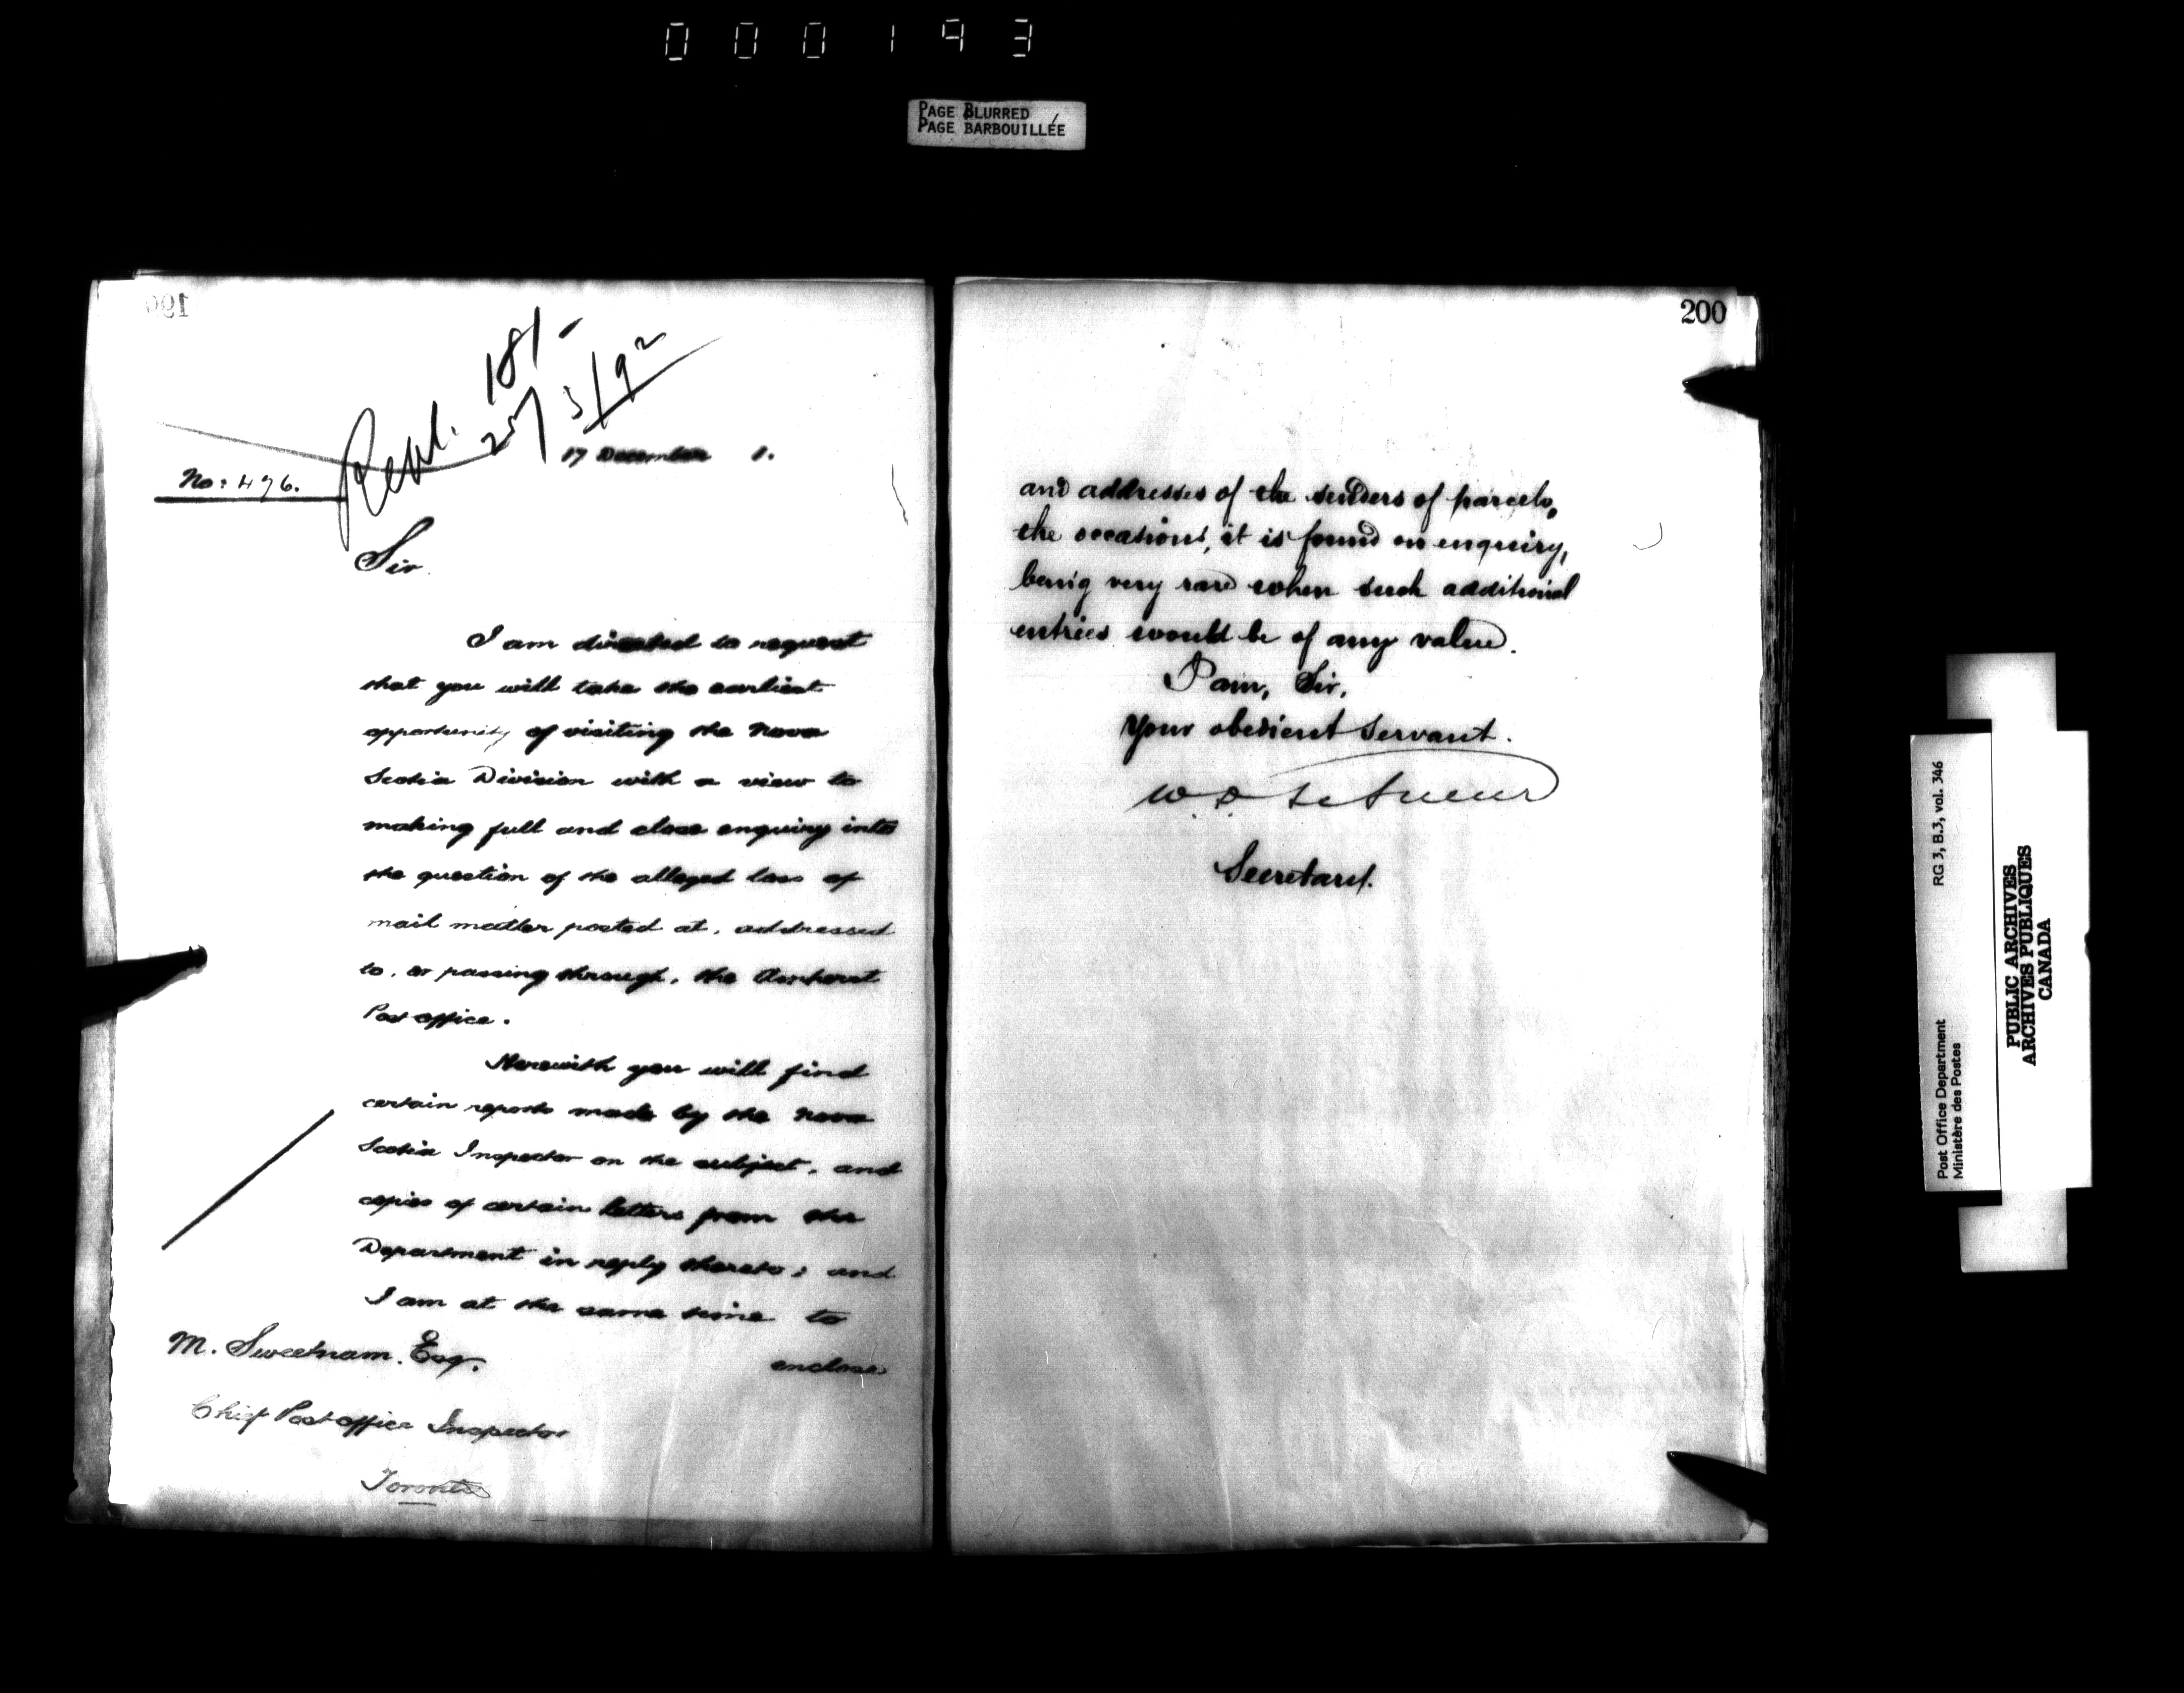 000193
PAGE BLURRED
PAGE BARBOUILLÉE
199
181-
25/3/92
17 December 1.
No: 496.
Sir
I am directed to request
that you will take the earliest
opportunity of visiting the Nova
Scotia Division with a view to
making full and close enquiry into
the question of the alleged loss of
mail matter posted at, addressed
to, or passing through, the Amherst
Post office.
Herewith you will find
certain reports made by the Nova
Scotia Inspector on the subject, and
copies of certain letters from the
Department in reply thereto; and
I am at the same time to
enclose
M. Sweetnam. Esq.
Chief Post office Inspector
Toronto
200
and addresses of the senders of parcels,
the occasions, it is found on enquiry,
being very rare when such additional
entries would be of any value.
I am, Sir,
Your obedient Servant.
W. D. LeSueur
Secretary.
Post Office Department
Ministère des Postes
RG 3, B.3, vol. 346
PUBLIC ARCHIVES
ARCHIVES PUBLIQUES
CANADA